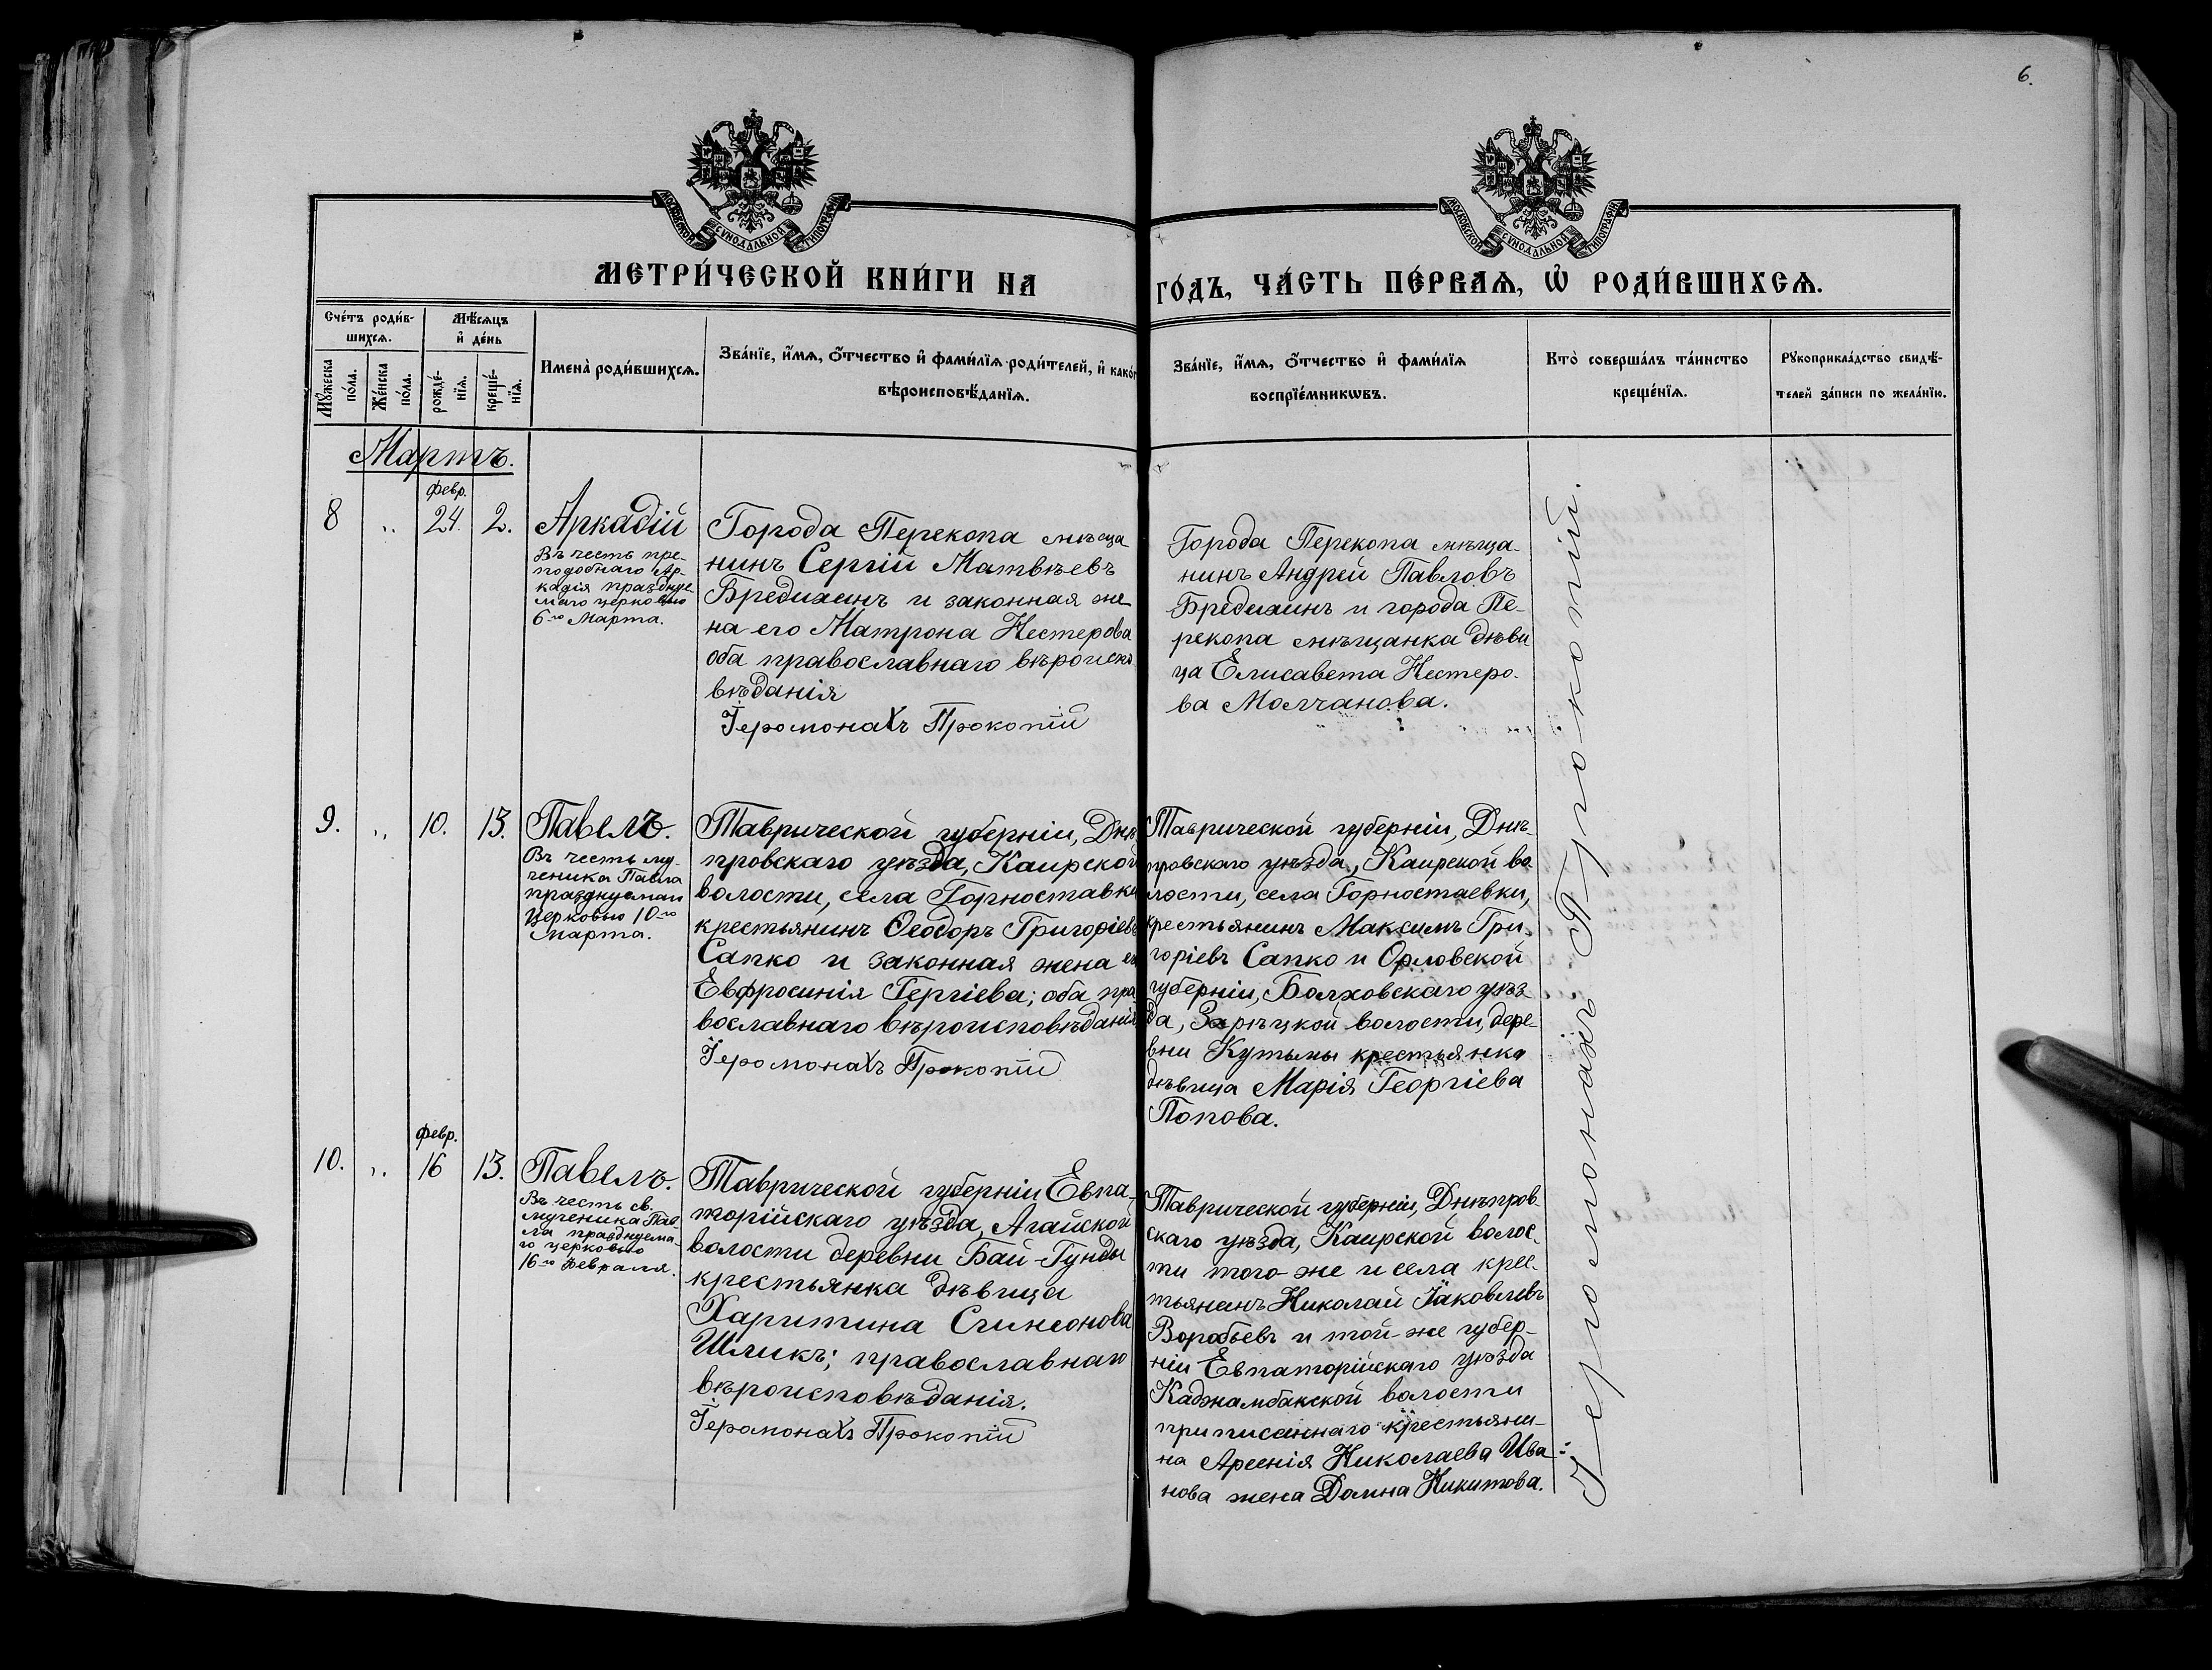 6.
МОСКОВСКОЙ СѴНОДАЛЬНОЙ ТИПОГРАФІИ
МОСКОВСКОЙ СѴНОДАЛЬНОЙ ТИПОГРАФІИ
МЕТРИ́ЧЕСКОЙ КНИ́ГИ НА
ГО́ДЪ, ЧА́СТЬ ПЕ́РВАѦ, Ѡ҆ РОДИ́ВШИХСѦ.
Сче́тъ роди́в-
шихсѧ.
Мѣ́сѧцъ
и҆ де́нь
Мꙋ́жеска
по́ла.
Же́нска
по́ла.
рожде́-
нїѧ.
креще́-
нїѧ.
Имена̀ роди́вшихсѧ.
Зва́нїе, и҆́мѧ, о҆́тчество и҆ фами́лїѧ роди́телей, и҆ како́г
вѣроисповѣ́данїѧ.
Зва́нїе, и҆́мѧ, о҆́тчество и҆ фами́лїѧ
воспрїе́мникѡвъ.
Кто̀ соверша́лъ та́инство
креще́нїѧ.
Рꙋкоприкла́дство свидѣ́-
телей за́писи по жела́нїю.
Мартъ.
8
„
февр.
24.
2.
Аркадій
Въ честь пре-
подобнаго Ар-
кадія праздуе-
маго церковью
6го Марта.
Города Перекопа мѣща
нинъ Сергій Матвѣевъ
Бредихинъ и законная же
на его Матрона Нестерова
оба православнаго вѣроиспо
вѣданія
Іеромонахъ Прокопій
Города Перекопа мѣща-
нинъ Андрей Павловъ
Бредихинъ и города Пе-
рекопа мѣщанка дѣви
ца Елисавета Нестеро-
ва Молчанова.
9.
„
10.
13.
Павелъ.
Въ честь му-
ченика Павла
празднуемаго
Церковью 10го
Марта.
Таврической губерніи, Днѣ
провскаго уѣзда, Каирской
волости, села Горноставки
крестьянинъ Ѳеодоръ Григоріевъ
Сапко и законная жена ег
Евфросинія Гергіева; оба пра
вославнаго вѣроисповѣданія
Іеромонахъ Прокопій
Таврической губерніи, Днѣ-
провскаго уѣзда, Каирской во
лости, села Горностаевки,
крестьянинъ Максимъ Гри-
горіевъ Сапко и Орловской
губерніи, Болховскаго уѣз
да, Зарѣцкой волости, дере-
вни Кутьмы крестьянка
дѣвица Марія Георгіева
Попова.
10.
„
февр.
16
13.
Павелъ.
Въ честь св.
мученика Пав-
ла празднуема-
го церковью
16го Февраля.
Таврической губерніи Евпа-
торійскаго уѣзда, Агайской
волости деревни Бай-Гунды
крестьянка дѣвица
Харитина Симеонова
Шликъ; православнаго
вѣроисповѣданія.
Іеромонахъ Прокопій
Таврической губерніи, Днѣпров-
скаго уѣзда, Каирской волос-
ти того-же и села крес-
тьянинъ Николай Іаковлевъ
Воробьевъ и той-же губер-
ніи Евпаторійскаго уѣзда
Каджамбакской волости
приписаннаго крестьяни-
на Арсенія Николаева Ива-
нова жена Домна Никитова.
Іеромонахъ Прокопій.